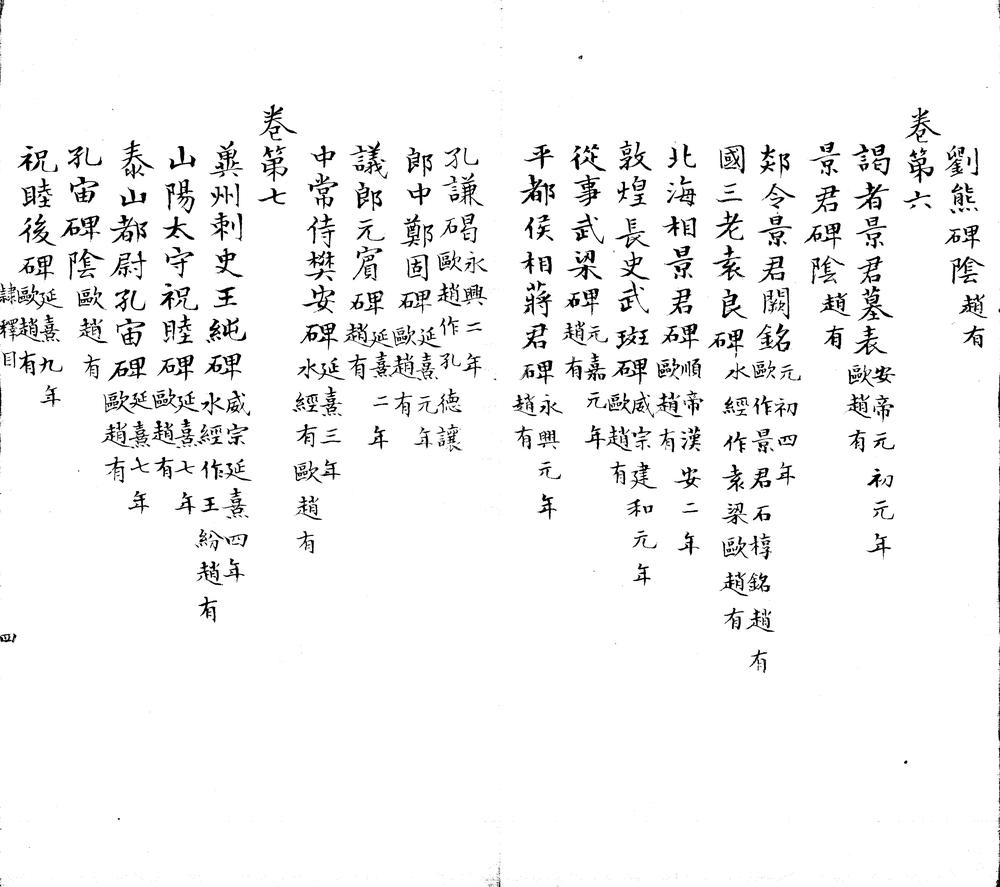 劉熊碑陰趙有
卷第六
謁者景君墓表安帝元初元年歐趙有
景君碑陰趙有
郯令景君闕銘元初四年歐作景君石椁銘趙有
國三老袁良碑水經作袁梁歐趙有
北海相景君碑順帝漢安二年歐趙有
敦煌長史武斑碑威宗建和元年歐趙有
從事武梁碑元嘉元年趙有
平都侯相蔣君碑永興元年趙有
孔謙碣永興二年歐趙作孔德讓
郎中鄭固碑延熹元年歐趙有
議郎元賓碑延熹二年趙有
中常侍樊安碑延熹三年水經有歐趙有
卷第七
兾州刺史王純碑威宗延熹四年水經作王紛趙有
山陽太守祝睦碑延熹七年歐趙有
泰山都尉孔宙碑延熹七年歐趙有
孔宙碑陰歐趙有
祝睦後碑延熹九年歐趙有
隸釋目
四